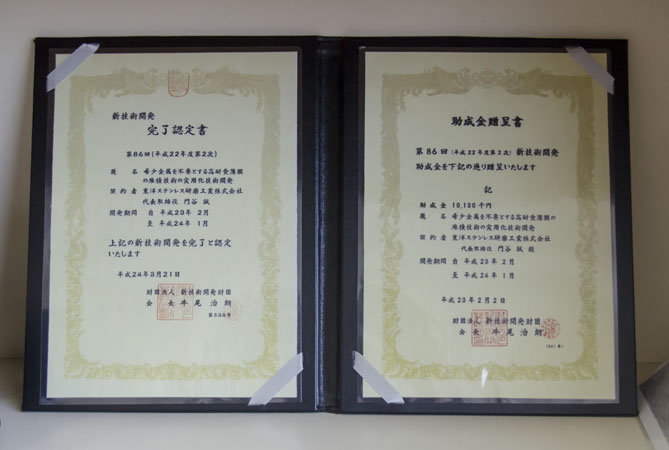 新技術開発
完了認定書
第86回(平成22年度第2次)
題 名 希少金属を不要とする高耐食薄膜
の堆積技術の実用化技術開発
契約者 東洋ステンレス研磨工業株式会社
代表取締役 門谷 誠
開発期間 自 平成23年 2月
至 平成24年 1月
上記の新技術開発を完了と認定
いたします
平成24年3月21日
財団法人 新技術開発財団
会 長 牛尾治朗
助成金贈呈書
第86回(平成22年度第2次)新技術開発
助成金を下記の通り贈呈いたします
記
助成金 10,100千円
題 名 希少金属を不要とする高耐食薄膜の
堆積技術の実用化技術開発
契約者 東洋ステンレス研磨工業株式会社
代表取締役 門谷 誠 殿
開発期間 自 平成23年 2月
至 平成24年 1月
平成23年2月2日
財団法人 新技術開発財団
会 長 牛尾治朗